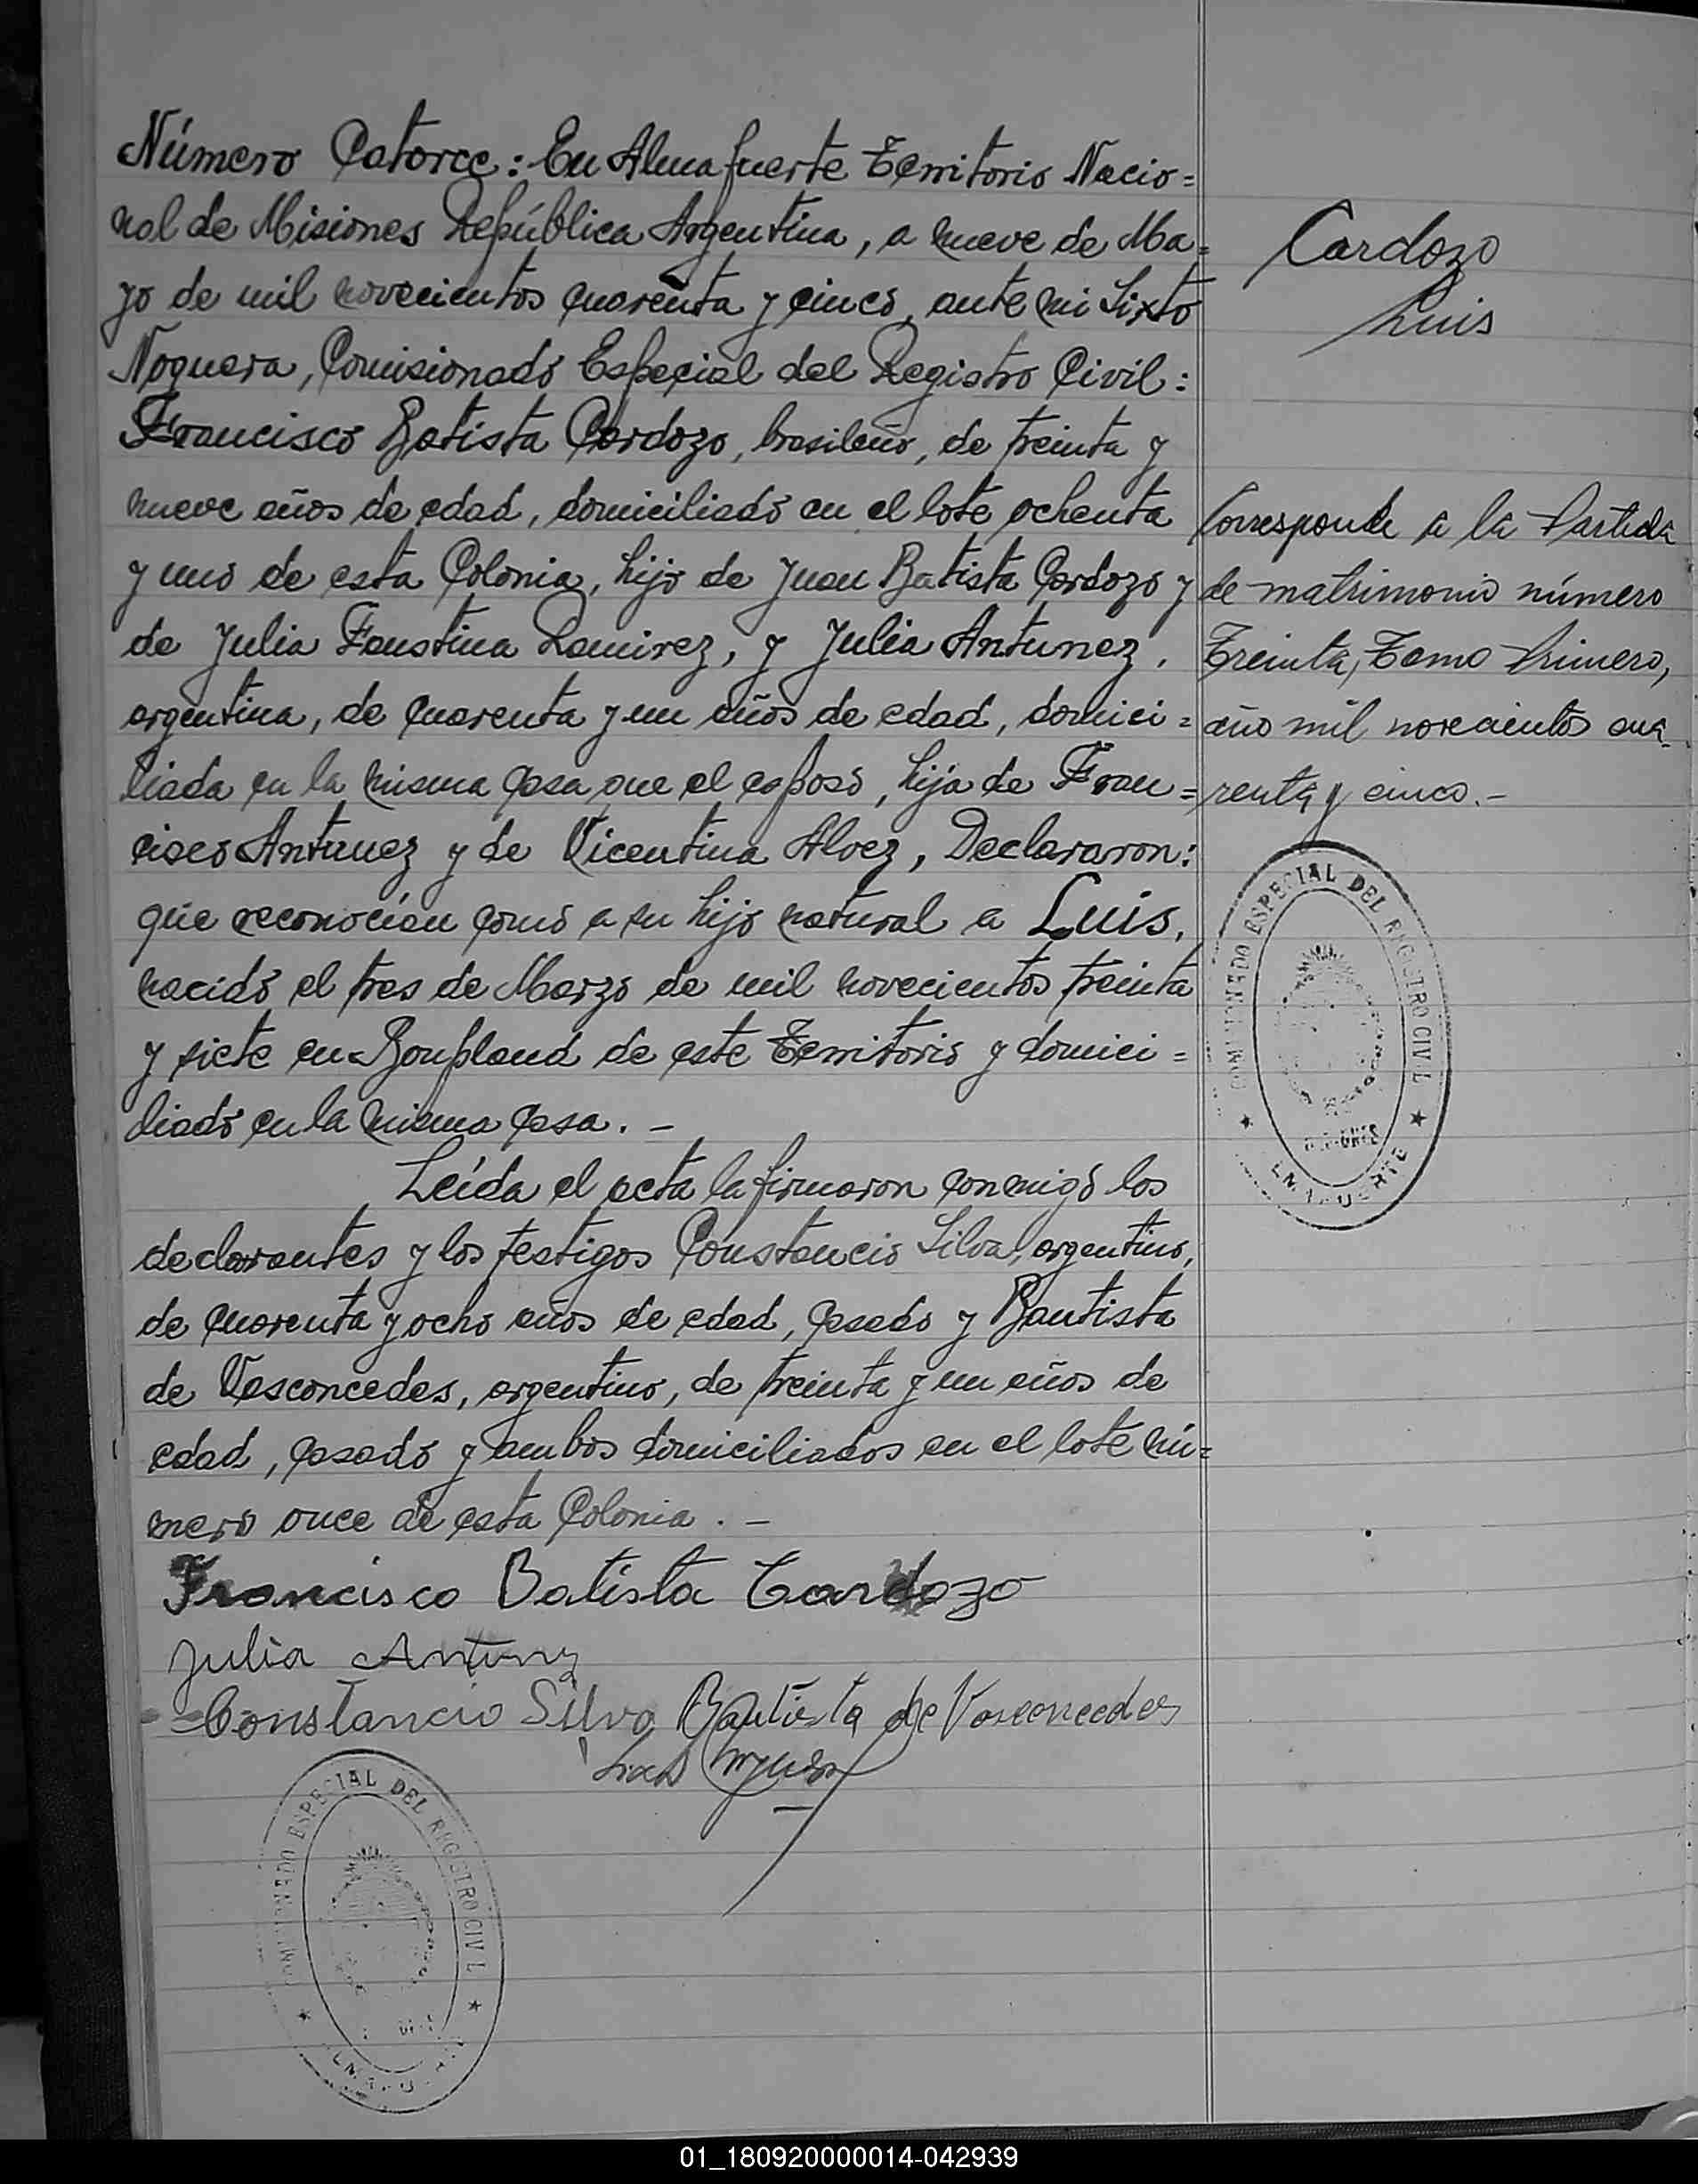 Número Catorce: En Almafuerte Territorio Nacio=
nal de Misiones República Argentina, a nueve de Ma=
yo de mil novecientos cuarenta y cinco, ante mi Sixto
Noguera, Comisionado Especial del Registro Civil:
Francisco Batista Cardozo, brasileño, de treinta y
nueve años de edad, domiciliado en el lote ochenta
y uno de esta Colonia, hijo de Juan Batista Cardozo y
de Julia Faustina Ramirez, y Julia Antunez,
argentina, de cuarenta y un años de edad, domici=
liada en la misma casa que el esposo, hija de Fran=
cisco Antunez y de Vicentina Alvez, Declararon:
que reconocían como a su hijo natural a Luis,
nacido el tres de Marzo de mil novecientos treinta
y siete en Bonpland de este Territorio y domici=
liado en la misma casa. -
Leída el acta la firmaron conmigo los
declarantes y los testigos Constancio Silva, argentino,
de cuarenta y ocho años de edad, casado y Bautista
de Vasconcedes, argentino, de treinta y un años de
edad, casado y ambos domiciliados en el lote nú=
mero once de esta Colonia. -
Francisco Batista Cardozo
Julia Antunz
Constancio Silva Bautista de Vasconcedes
Cardozo
Luis
Corresponde a la Partida
de matrimonio número
Treinta, Tomo Primero,
año mil novecientos cua-
renta y cinco.-
COMISIONADO ESPECIAL DEL REGISTRO CIVIL
MISIONES
ALMAFUERTE
COMISIONADO ESPECIAL DEL REGISTRO CIVIL
ALMAFUERTE
01_180920000014-042939